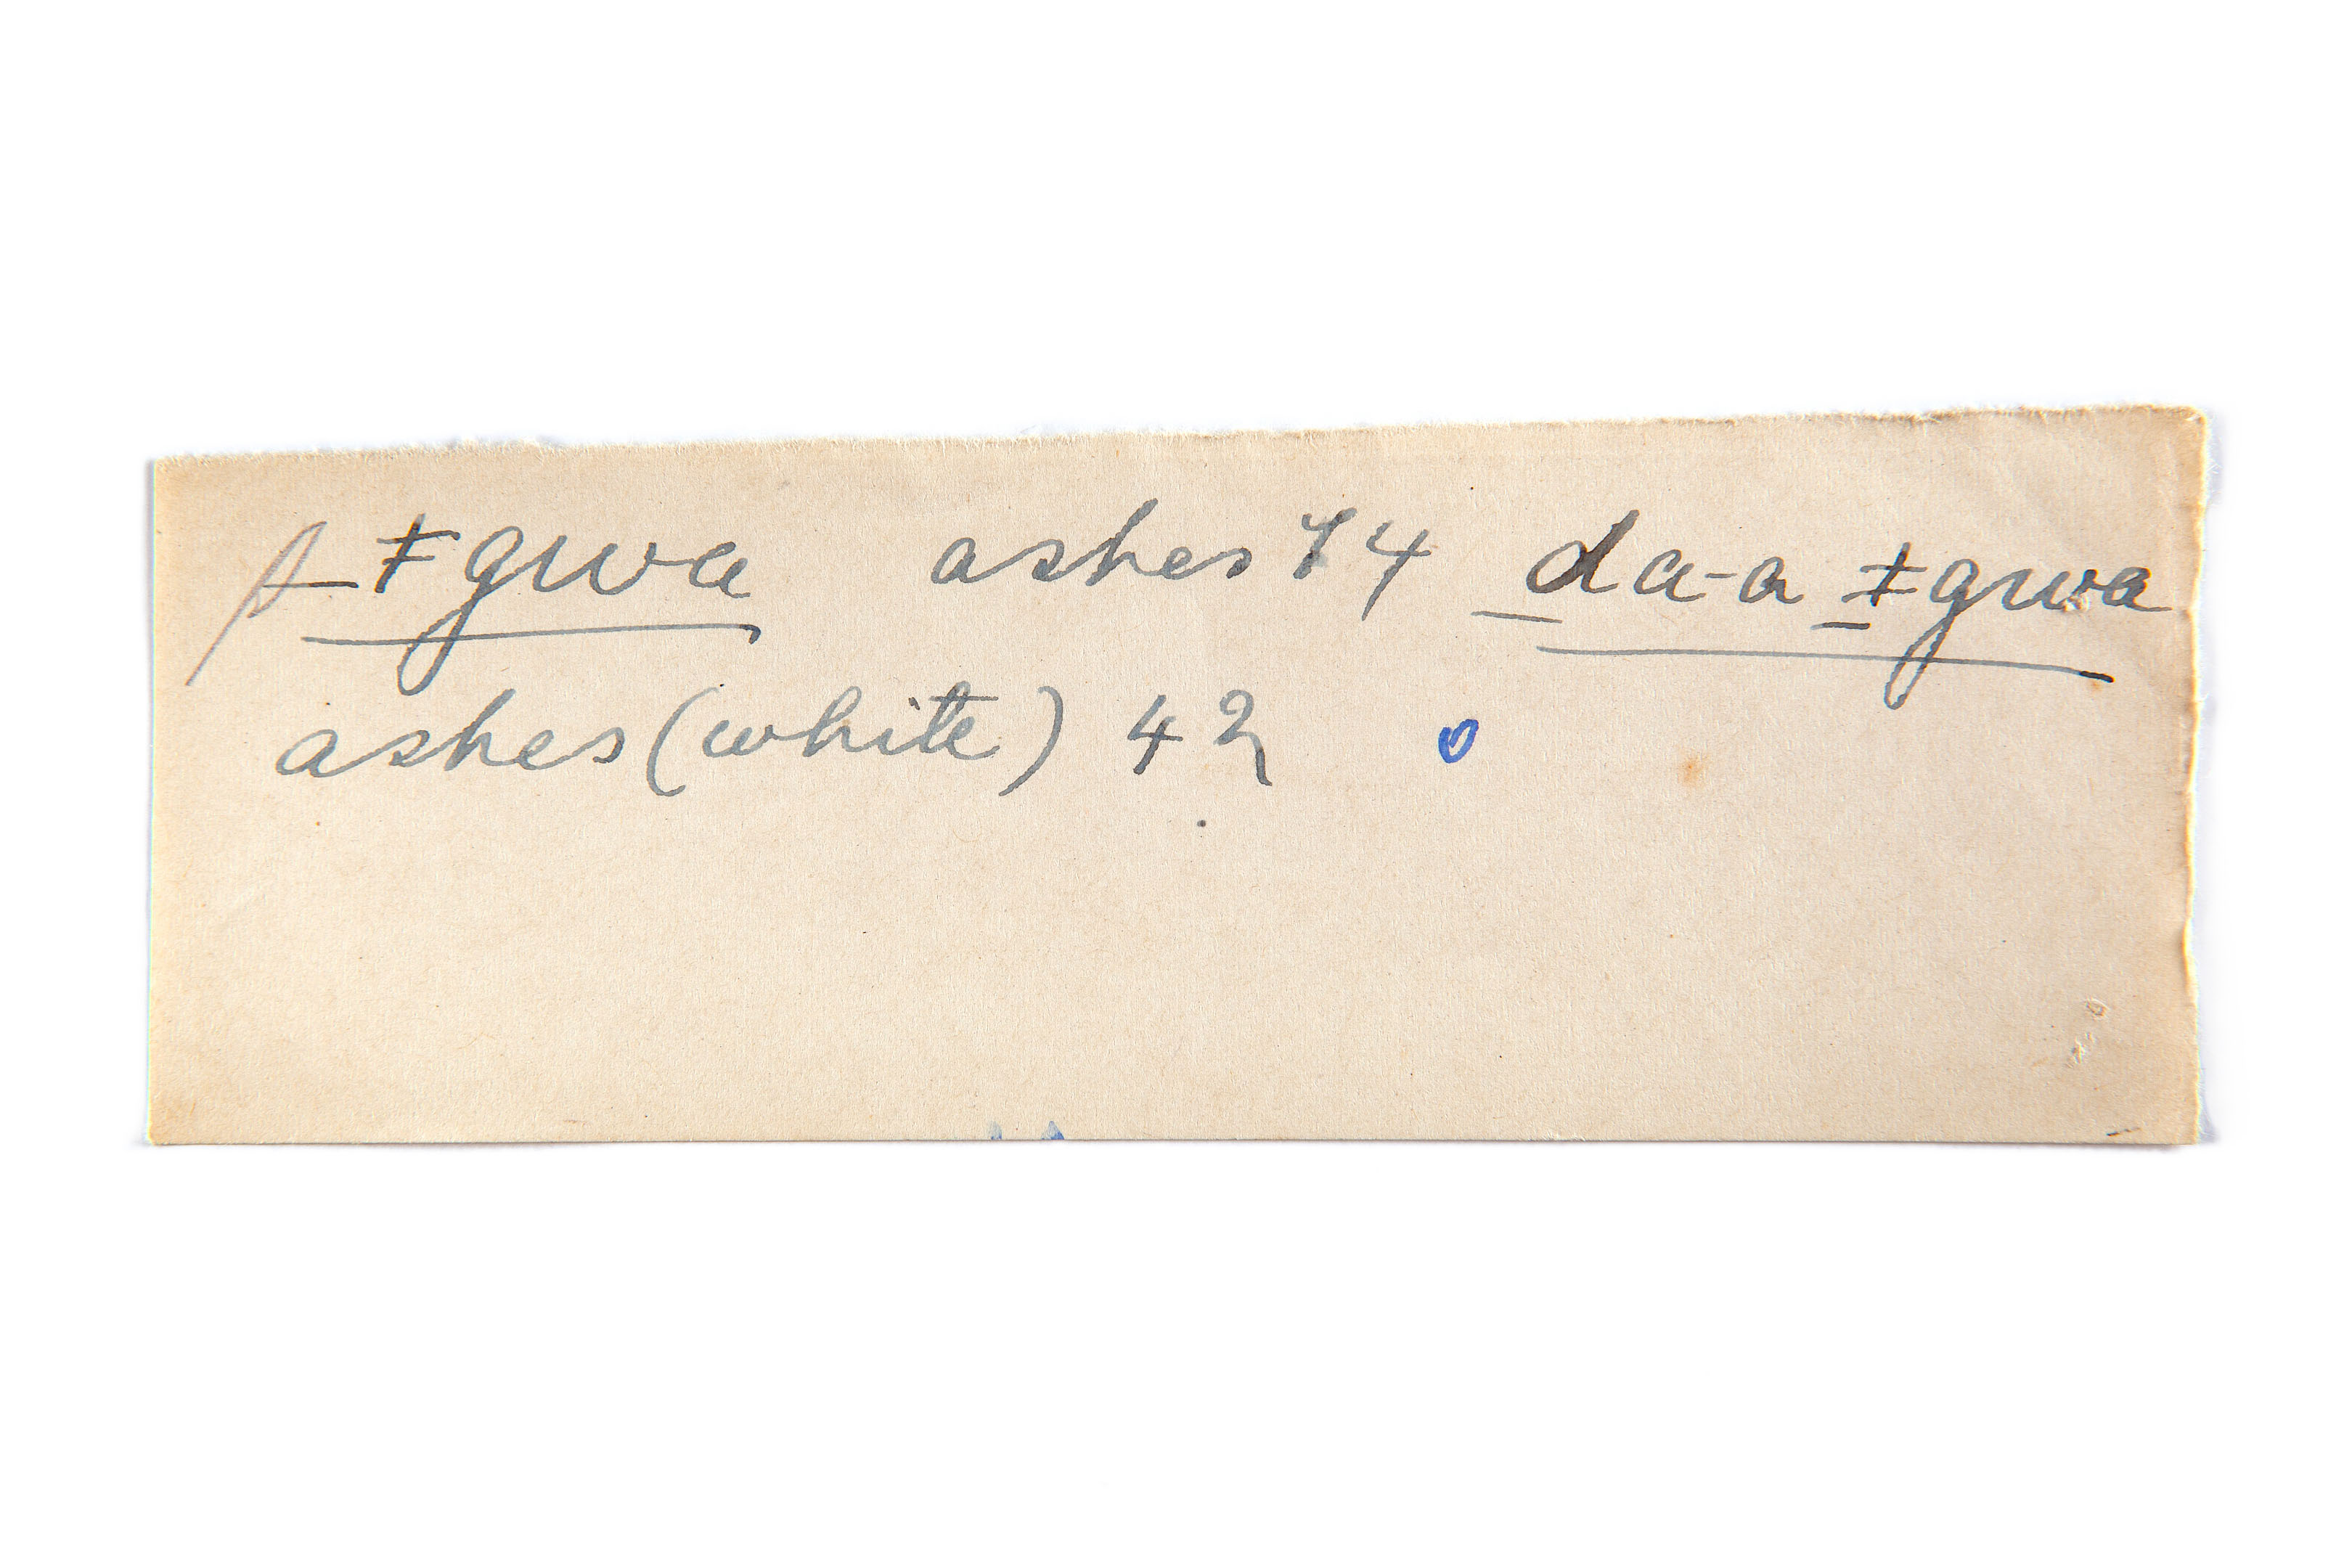 ǂgwa ashes 14 da-a ǂgwa
ashes (white) 42